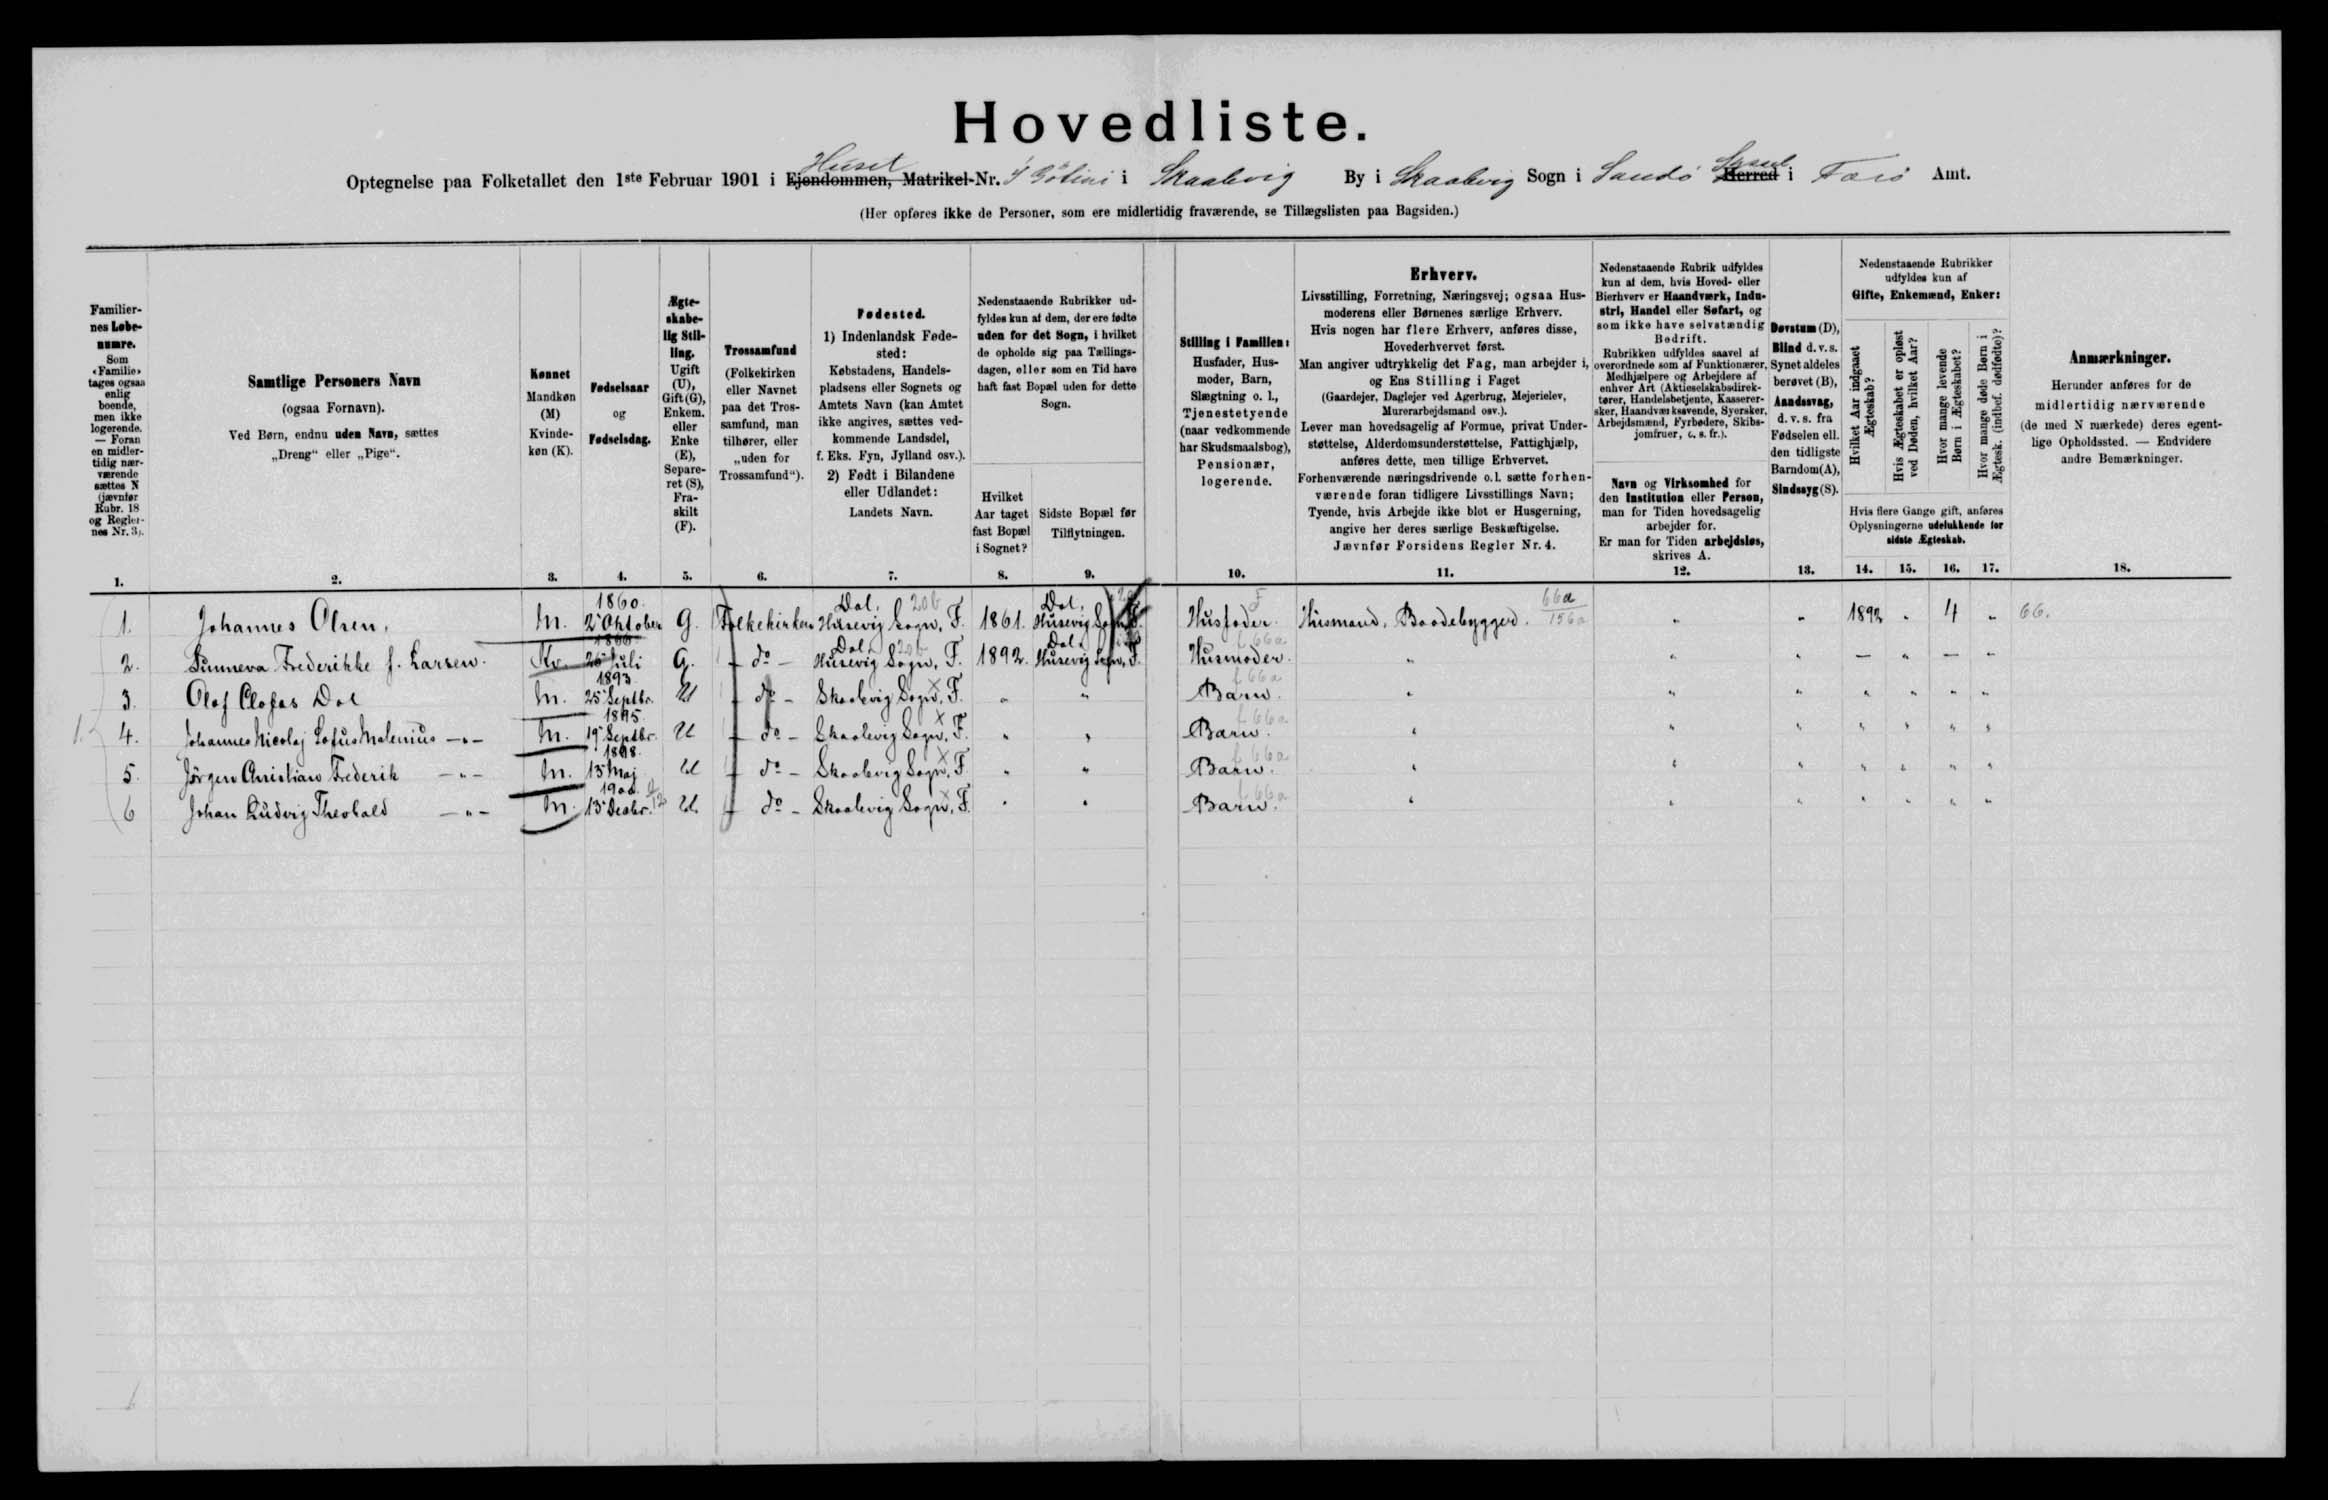 Hovedliste.
Huset Syssel
Optegnelse paa Folketallet den 1ste Februar 1901 i Ejendommen, Matrikel-Nr. i Skaalevig By i Skaalevig Sogn i Sandö Herred i Færö Amt.
(Her opføres ikke de Personer, som ere midlertidig fraværende, se Tillægslisten paa Bagsiden.)
Familier-
nes Løbe-
numre.
Som
«Familie»
tages ogsaa
enlig
boende,
men ikke
logerende.
— Foran
en midler-
tidig nær-
værende
sættes N
(jævnfør
Rubr. 18
og Regler-
nes Nr. 3).
1.
Samtlige Personers Navn
(ogsaa Fornavn).
Ved Børn, endnu uden Navn, sættes
„Dreng“ eller „Pige“.
2.
Kønnet
Mandkøn
(M)
Kvinde-
køn (K).
3.
Fødselsaar
og
Fødselsdag.
4.
Ægte-
skabe-
lig Stil-
ling.
Ugift
(U),
Gift (G),
Enkem.
eller
Enke
(E),
Separe-
ret (S),
Fra-
skilt
(F).
5.
Trossamfund
(Folkekirken
eller Navnet
paa det Tros-
samfund, man
tilhører, eller
„uden for
Trossamfund“).
6.
Fødested.
1) Indenlandsk Føde-
sted:
Købstadens, Handels-
pladsens eller Sognets og
Amtets Navn (kan Amtet
ikke angives, sættes ved-
kommende Landsdel,
f. Eks. Fyn, Jylland osv.).
2) Født i Bilandene
eller Udlandet:
Landets Navn.
7.
Nedenstaaende Rubrikker ud-
fyldes kun af dem, der ere fødte
uden for det Sogn, i hvilket
de opholde sig paa Tællings-
dagen, eller som en Tid have
haft fast Bopæl uden for dette
Sogn.
Hvilket
Aar taget
fast Bopæl
i Sognet?
8.
Sidste Bopæl før
Tilflytningen.
9.
Stilling i Familien:
Husfader, Hus-
moder, Barn,
Slægtning o. l.,
Tjenestetyende
(naar vedkommende
har Skudsmaalsbog),
Pensionær,
logerende.
10.
Erhverv.
Livsstilling, Forretning, Næringsvej; ogsaa Hus-
moderens eller Børnenes særlige Erhverv.
Hvis nogen har flere Erhverv, anføres disse,
Hovederhvervet først.
Man angiver udtrykkelig det Fag, man arbejder i,
og Ens Stilling i Faget
(Gaardejer, Daglejer ved Agerbrug, Mejerielev,
Murerarbejdsmand osv.).
Lever man hovedsagelig af Formue, privat Under-
støttelse, Alderdomsunderstøttelse, Fattighjælp,
anføres dette, men tillige Erhvervet.
Forhenværende næringsdrivende o. l. sætte forhen-
værende foran tidligere Livsstillings Navn;
Tyende, hvis Arbejde ikke blot er Husgerning,
angive her deres særlige Beskæftigelse.
Jævnfør Forsidens Regler Nr. 4.
11.
Nedenstaaende Rubrik udfyldes
kun af dem, hvis Hoved- eller
Bierhverv er Haandværk, Indu-
stri, Handel eller Søfart, og
som ikke have selvstændig
Bedrift.
Rubrikken udfyldes saavel af
overordnede som af Funktionærer,
Medhjælpere og Arbejdere af
enhver Art (Aktieselskabsdirek-
tører, Handelsbetjente, Kasserer-
sker, Haandværkssvende, Syersker,
Arbejdsmænd, Fyrbødere, Skibs-
jomfruer, o. s. fr.).
Navn og Virksomhed for
den Institution eller Person,
man for Tiden hovedsagelig
arbejder for.
Er man for Tiden arbejdsløs,
skrives A.
12.
Døvstum (D),
Blind d. v. s.
Synet aldeles
berøvet (B),
Aandssvag,
d. v. s. fra
Fødselen ell.
den tidligste
Barndom (A),
Sindssyg (S).
13.
Nedenstaaende Rubrikker
udfyldes kun af
Gifte, Enkemænd, Enker:
Hvilket Aar indgaaet
Ægteskab?
Hvis Ægteskabet er opløst
ved Døden, hvilket Aar?
Hvor mange levende
Børn i Ægteskabet?
Hvor mange døde Børn i
Ægtesk. (indbef. dødfødte)?
Hvis flere Gange gift, anføres
Oplysningerne udelukkende for
sidste Ægteskab.
14. 15. 16. 17.
Anmærkninger.
Herunder anføres for de
midlertidig nærværende
(de med N mærkede) deres egent-
lige Opholdssted. — Endvidere
andre Bemærkninger.
18.
1860. Dal, 20b Dal, F 66a
1. Johannes Olsen, M. 2' Oktober G. Folkekirken Husevig Sogn, F. 1861. Husevig Sogn, F. Husfader. Husmand, Baadebygger. 156a " " 1892 " 4 " 66.
1866 Dal, 20b Dal, f 66a
2. Sunneva Frederikke f. Larsen. Kv. 26' Juli G. do - Husevig Sogn, F. 1892. Husevig Sogn, F. Husmoder. " " " — " — "
1893 f 66a
3. Olaf Clofas Dal M. 25' Septbr. U do - Skaalevig Sogn, F. " " Barn. " " " " " " "
1895. f 66a
1. 4. Johannes Nicolaj Lofus Malenius —"— M. 19' Septbr. U do - Skaalevig Sogn, F. " " Barn. " " " " " " "
1898. f 66a
5. Jörgen Christian Frederik —"— M. 13' Maj U do - Skaalevig Sogn, F. " " Barn. " " " " " " "
1900. f 66a
6 Johan Ludvig Theobald —"— M. 13' Decbr. U do - Skaalevig Sogn, F. " " Barn. " " " " " " "